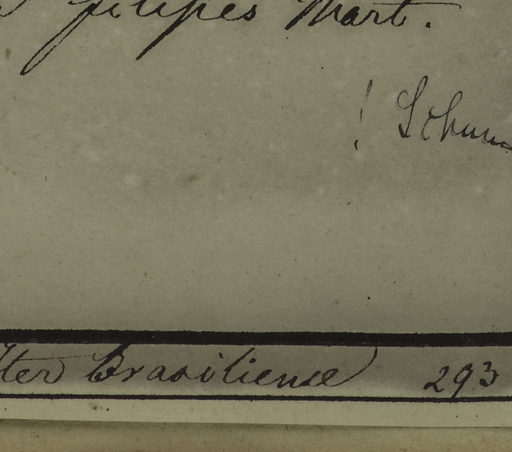 filipes Mart.
! Schum
Iter Brasiliense 293